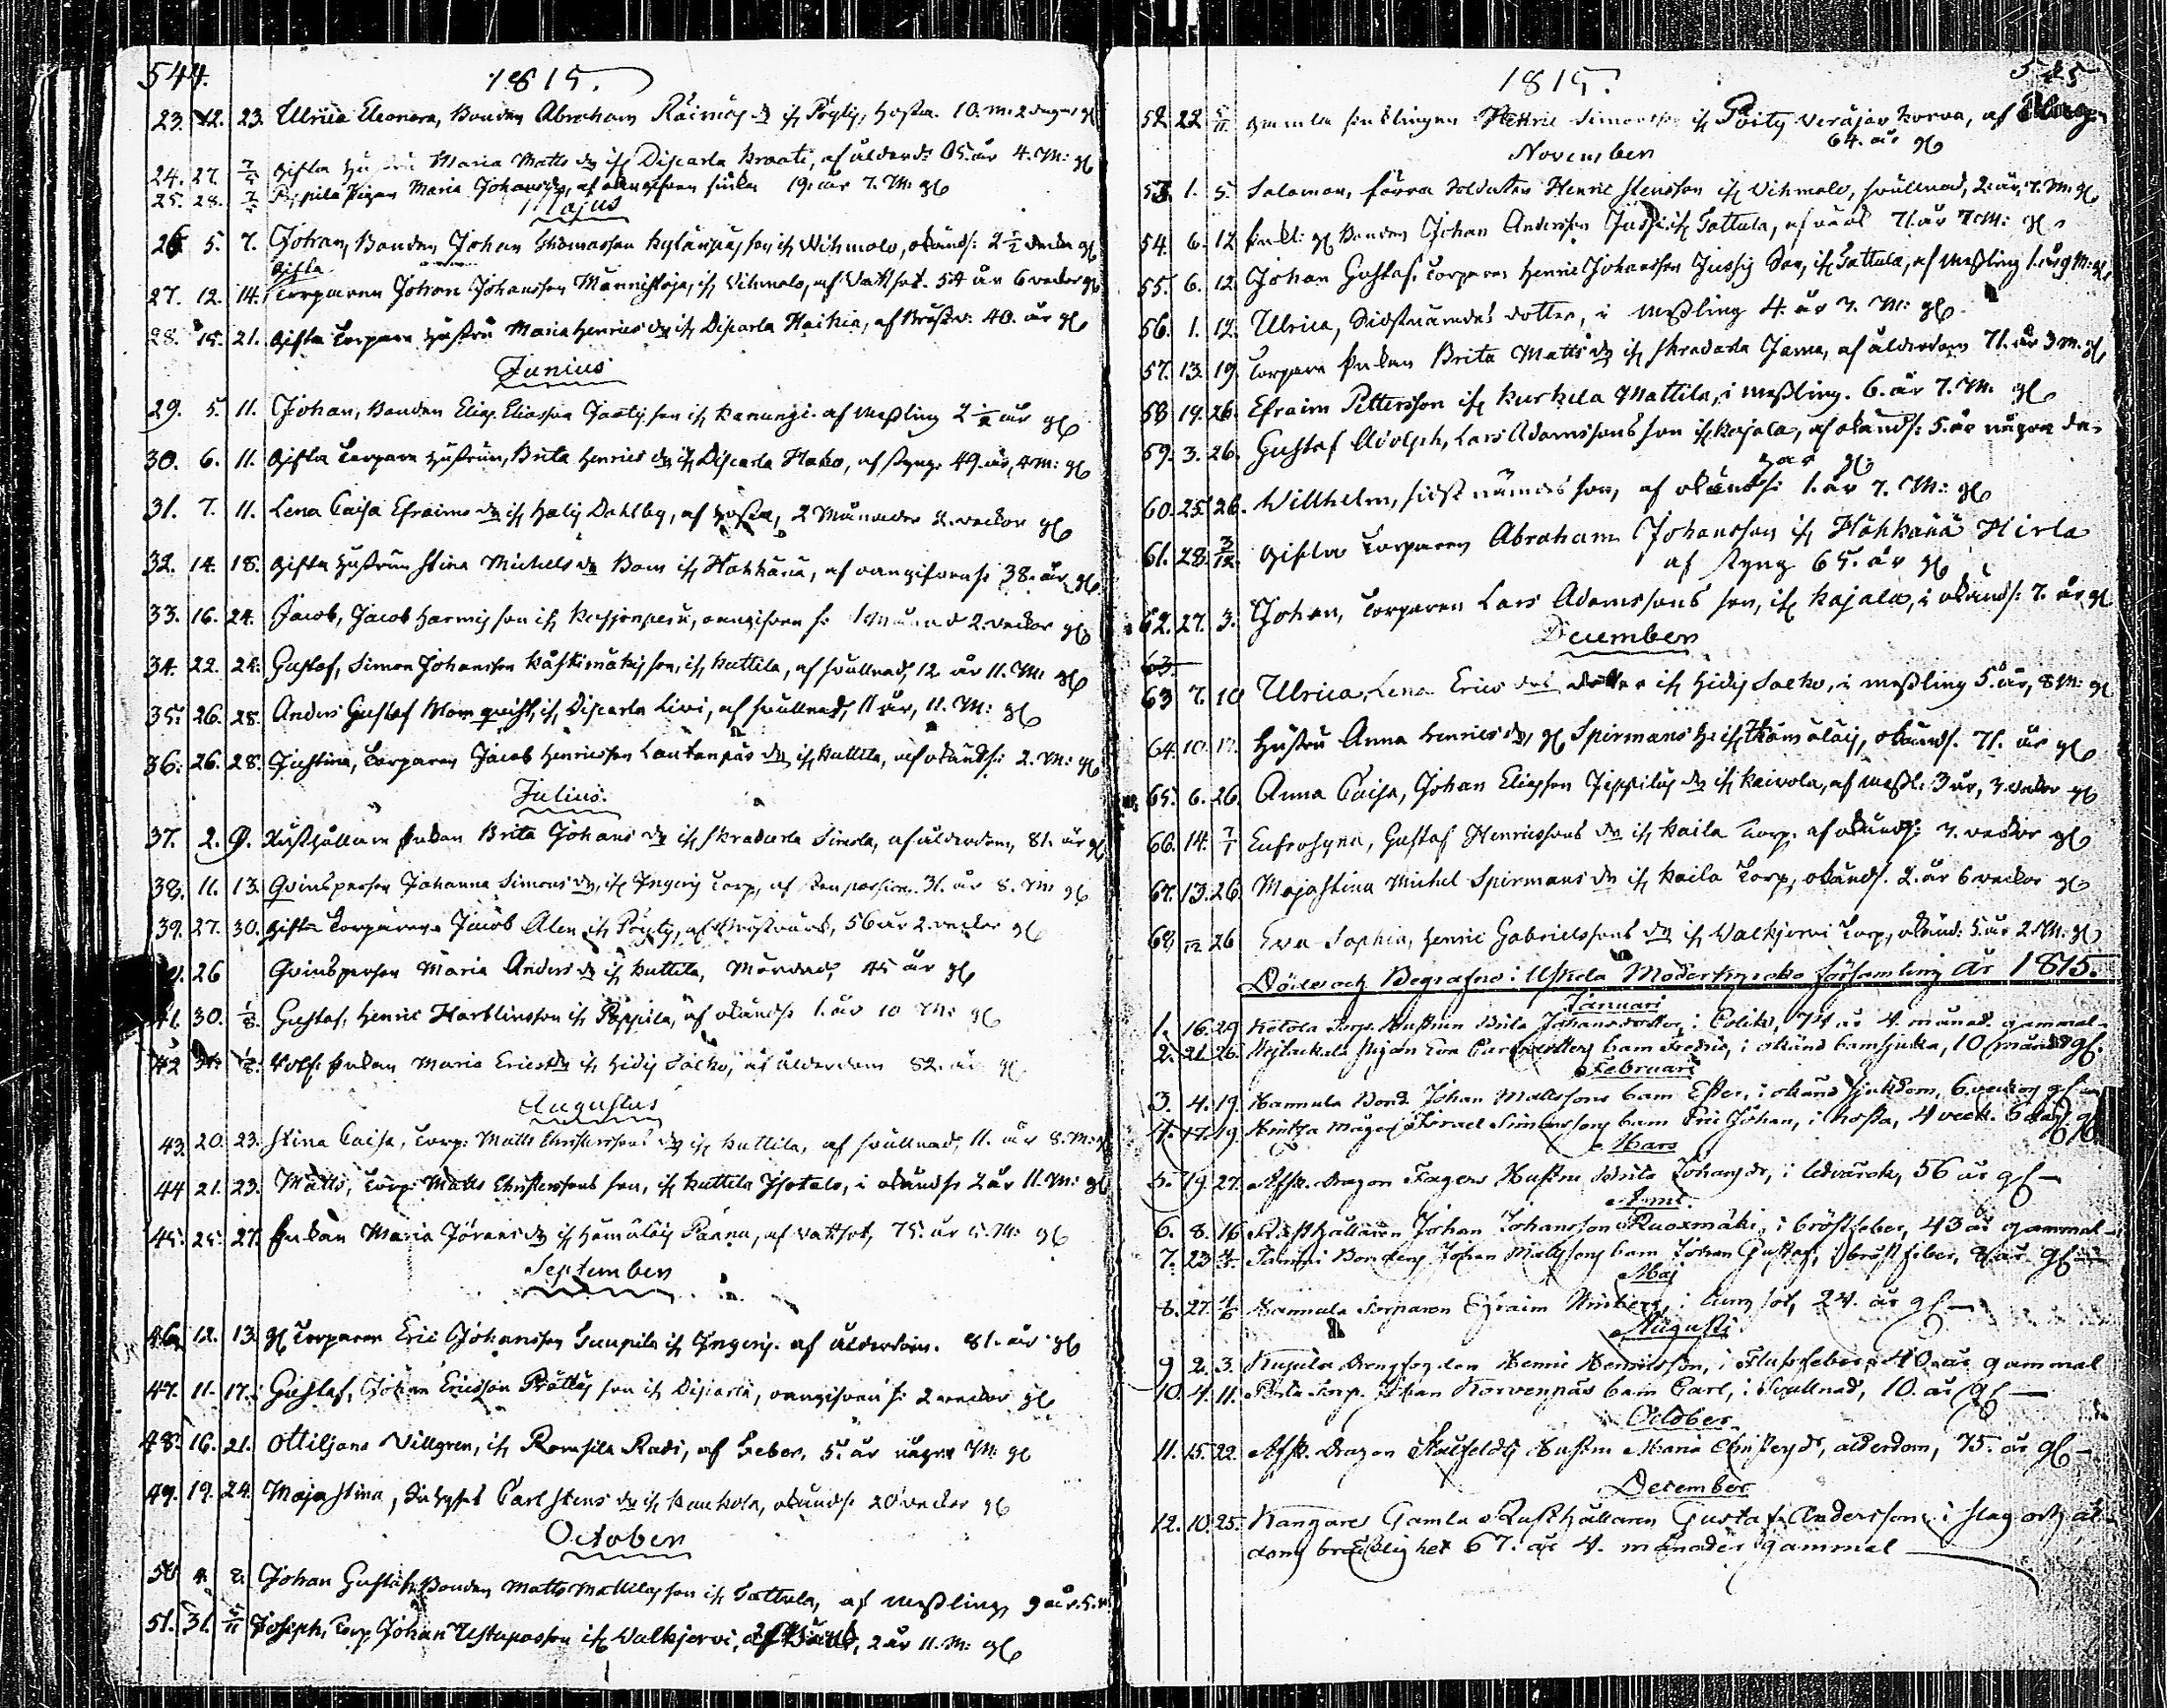 544.
1815.
23. 22. 23. Ulrica Eleonora, Bonden Abraham Räimös dr ifr. Pöyty, Hosta. 10. M: 2 dagar gl
24. 27. 7/5 Gifta Hustru Maria Matts dr ifr. Discarla Krooti, af ålderd: 65. år 4. M: gl
25. 28. 7/5 Pigan Maria Johans dr, af oangifven siukd 19. år 7. M: gl
Majus
26. 5. 7. Johan, Bonden Johan Thomasson son ifr. Vihmalo, okänds: 2 1/2 vecka gl
Gifta
27. 12. 14. Torparen Johan Johansson Männistöja, ifr. Vihmalo, af Vattsot. 54 år 6 veckor gl
28. 15. 21. Gifta Torpare Hustru Maria Henrics dr ifr. Discarla Haikia, af Bröstv: 40. år gl
Junius
29. 5. 11. Johan, Bonden Elias Eliasson son ifr. af Meßling 2 1/2 år gl
30. 6. 11. Gifta Torpare Hustrun, Brita Henrics dr ifr. Discarla Hako, af styng. 49. år, 4 M: gl
31. 7. 11. Lena Caisa Efraims dr ifr. Halij Dahlby, af Hosta, 2 Månader 2. veckor gl
32. 14. 18. Gifta Hustrun Stina Michels dr Bom ifr. Hakkara, af oangifven s: 38. år gl
33. 16. 24. Jacob, Jacob son ifr. oangifven s: 1 Månad 2. veckor gl
34. 22. 24. Gustaf, Simon Johansson Kåskimäkis son, ifr. Kuttila, af svullnad, 12 år 11. M: gl
35. 26. 28. Anders Gustaf Momqvist, ifr. Discarla Livi, af svullnad, 11 år, 11. M: gl
36. 26. 28. Justina, Torparen Jacob Henricsson Lautenpäs dr ifr. Kuttila, af okänds: 2. M: gl
Julius.
37. 2. 9. Rusthållare Enkan Brita Johans dr ifr. Skradarla Simola, af ålderdom, 81. år gl
38. 11. 13. Qvinsperson Johanna Simons dr, ifr. Yngeris Torp, af 31. år 8. M: gl
39. 27. 30. Gifta Torparen Jacob Alen ifr. Pöyty, af Bröstvärk, 56 år 2. veckor gl
40. 26 Qvinsperson Maria Anders dr ifr. Kuttila, Mördad, 45 år gl
41. 30. 1/8. Gustaf, Henric Hartlinsson ifr. Päppila, af okänds: 1. år 10 M: gl
42 31. 1/8. Enkan Maria Erics dr ifr. Hidis Salko, af ålderdom 82. år gl
Augustus
43. 20. 23. Stina Caisa, Torp: Matts Christerssons dr ifr. Kuttila, af svullnad, 11. år 8. M: gl
44 21. 23. Matts, Torp: Matts Christerssons son, ifr. Kuttila Isotalo, i okänds: 2 år 11. M: gl
45. 25. 27. Enkan Maria Jörans dr ifr. Hämäläis Panna, af vattsot, 75. år 5. M: gl
September
46. 12. 13 gl Torparen Eric Johansson Suupila ifr. Yngeris. af ålderdom. 81. år gl
47. 11. 17. Gustaf, Johan Ericsson Prättäs son ifr. Discarla, oangifven s: 2 veckor gl
48. 16. 21. Ottiljana Villgren, ifr. Romsila Radi, af Feber, 5. år några M: gl
49. 19. 24. Maja Stina, Carl Stens dr ifr. Kaukola, okänds: 20 veckor gl
October
50 4. 8. Johan Gustaf, Bonden Matts Mattilas son ifr. Tattula, af Meßling, 9 år. 5. M
51. 31. 5/11 Joseph, Torp. Johan Ustaposson ifr. Valkjervi, af okänds, 2 år 11. M: gl
545
1815.
52. 22 5/11. Gamla Enklingen Henric Simonsson ifr. Pöity Veräjänkorva, af Slag.
64. år gl
November
53. 1. 5. Salomon, förra Soldaten Henric Stensson ifr. Vihmalo, svullnad, 2. år, 7. M: gl
54. 6. 12 Enkl: gl Bonden Johan Andersson Jussi ifr. Tattula, af värk 71. år 7 M: gl
55. 6. 12. Johan Gustaf, Torparen Henric Johansson Jussis Son, ifr. Tattula, af Meßling 1. år 9 M: gl
56. 1. 12. Ulrica, Sidstnämdes dotter, i Meßling 4. år 7. M: gl
57. 13. 19. Torpare Enkan Brita Matts dr ifr. Skradarla Jama, af ålderdom 71. år 3 M. gl
58 19. 26. Efraim Pettersson ifr. Kurkila Mattila, i Meßling. 6. år 7. M: gl
59. 3. 26. Gustaf Adolph, Lars Adamssons son ifr. Kajala, af okänds: 5. år några da-
gar gl
60. 25. 26. Willhelm, sidst nämdes son, af okänds: 1. år 7. M: gl
61. 28. 3/12. Gifta Torparen Abraham Johansson ifr. Hakkara Hirla
af Styng 65. år gl
62. 27. 3. Johan, Torparen Lars Adamssons son, ifr. Kajala, i okänds: 7. år gl
December
63
63 7. 10 Ulrica Lena Erics dotter ifr. Hidis Salko, i meßling 5. år, 8 M: gl
64. 10. 17. Hustru Anna Henrics dr, gl Spirmans H: ifr. Hämäläis, okänds. 71. år gl
65. 6. 26. Anna Caisa, Johan Eliasson Jeppiläs dr ifr. Kaivola, af meßl: 3 år, 3 veckor gl
66. 14. 7/1 Eufrosyna, Gustaf Henricssons dr ifr. Kaila Torp. af okänds: 3. veckor gl
67. 13. 26. Maja Stina Michel Spirmans dr ifr. Kaila Torp, okänds. 2. år 6 veckor gl
68 12 26 Eva Sophia, Henric Gabrielssons dr ifr. Valkjervi Torp, okänd: 5. år 2. M: gl
Döde och Begrafne i Uskela Moderkyrcko församling År 1815.
Januari
1. 16. 29. Kotola Torp. Hustrun Brita Johansdotter, i Colik, 74 år 4. månad. gammal
2. 21 26. Pigan Eva Carlsdotters barn Fredric, i okänd barnsjuka, 10 månad gl.
Februari
3. 4. 19. Hannula Bond. Johan Mattssons barn Ester, i okänd sjukdom, 6. veckor gl
4. 17. 19. Israel Simonssons barn Eric Johan, i hosta, 4 veck. 6 dag. gl
Mars
5. 19 27. Afsk. Dragon Fagers Hustru Brita Johansdr, i Ledvärck, 56 år gl —
April.
6. 8. 16 Rusthållaren Johan Johansson Ruoxmäki, i bröstfeber, 43 år gammal
7. 23 Tammi Bondens Johan Matssons barn Johan Gustaf, i bröstfeber, år gl
Maj
8. 27. 4/6 Hannula Torparen Efraim Winberg, i lungsot, 24. år gl —
Augusti
9 2. 3. Kukila Drengfogden Henric Henricsson, i Flussfeber, 40 år gammal
10. 4. 11. Torp. Johan Korvenpäs barn Carl, i Svullnad, 10. år gl —
October
11. 15. 22. Afsk. Dragon Stålfelds Hustru Maria Christersdr, ålderdom, 75. år gl —
December
12. 10. 25. Kangare Gamla Rusthållaren Gustaf Andersson i slag och ål-
doms bräcklighet 67. år 4. månader gammal